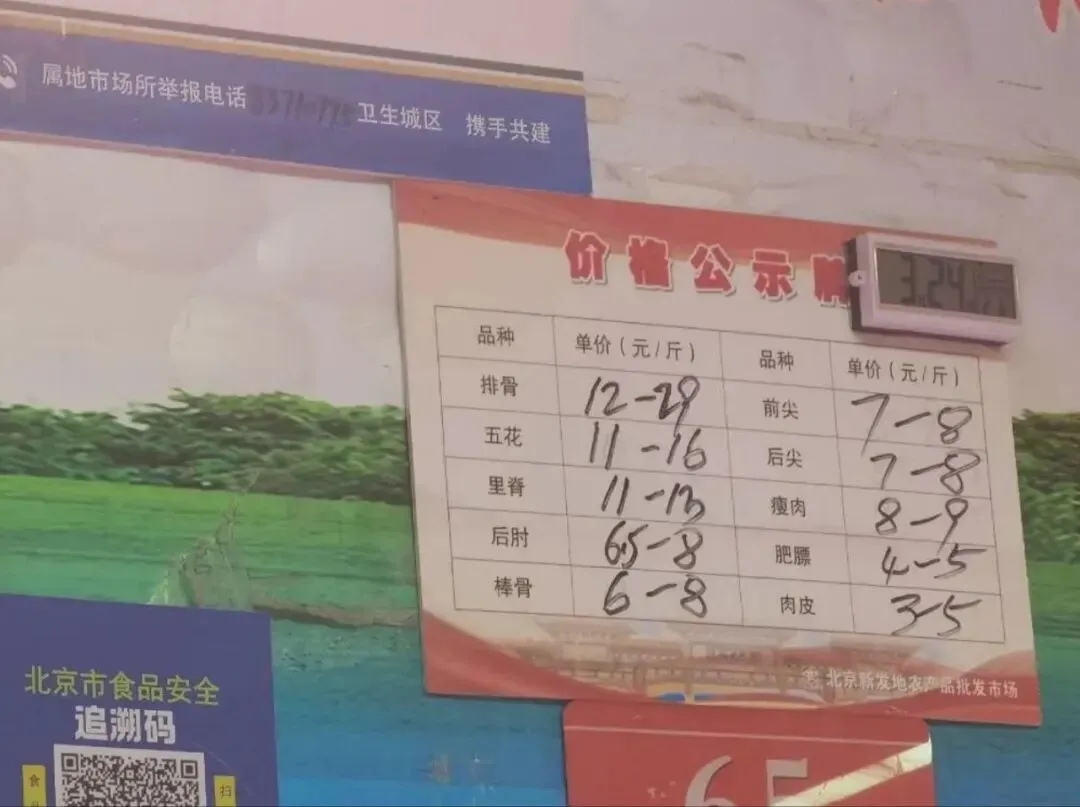 属地市场所举报电话 卫生城区 携手共建
价格公示牌
品种 单价(元/斤) 品种 单价(元/斤)
排骨 12-29 前尖 7-8
五花 11-16 后尖 7-8
里脊 11-13 瘦肉 8-9
后肘 6.5-8 肥膘 4-5
棒骨 6-8 肉皮 3-5
北京新发地农产品批发市场
北京市食品安全
追溯码
食
扫
65